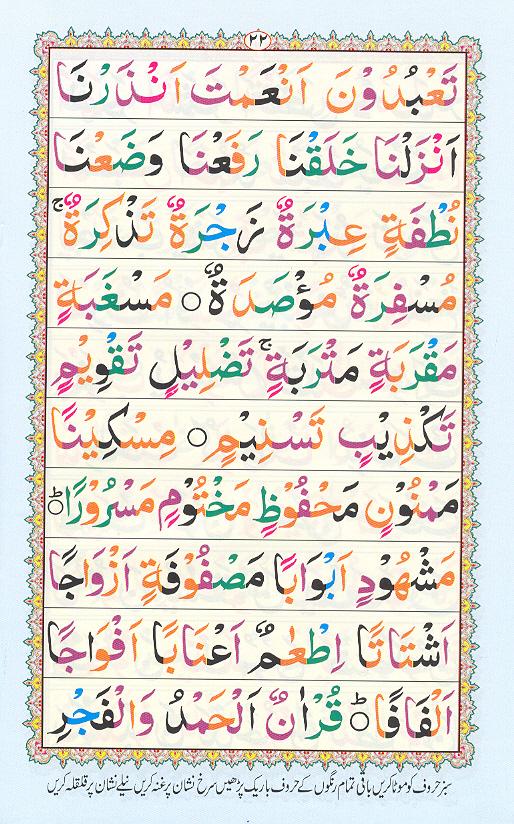 ۲۲
تَعْبُدُوْنَ اَنْعَمْتَ اَنْذَرْنَا
اَنْزَلْنَا خَلَقْنَا رَفَعْنَا وَضَعْنَا
نُطْفَةٍ عِبْرَةٌ زَجْرَةٌ تَذْكِرَةٌ ۚ
مُسْفِرَةٌ مُؤْصَدَةٌ ○ مَسْغَبَةٍ
مَقْرَبَةٍ مَتْرَبَةٍ ۚ تَضْلِيْلٍ تَقْوِيْمٍ
تَكْذِيْبٍ تَسْنِيْمٍ ○ مِسْكِيْنًا
مَمْنُوْنٍ مَحْفُوْظٍ مَخْتُوْمٍ مَسْرُوْرًا ○ؕ
مَشْهُوْدٍ اَبْوَابًا مَصْفُوْفَةٍ اَزْوَاجًا
اَشْتَاتًا اِطْعٰمٌ اَعْنَابًا اَفْوَاجًا
اَلْفَافًا ○ؕ قُرْاٰنٌ اَلْحَمْدُ وَالْفَجْرِ
سبز حروف کو موٹا کریں باقی تمام رنگوں کے حروف باریک پڑھیں سرخ نشان پر غنہ کریں نیلے نشان پر قلقلہ کریں